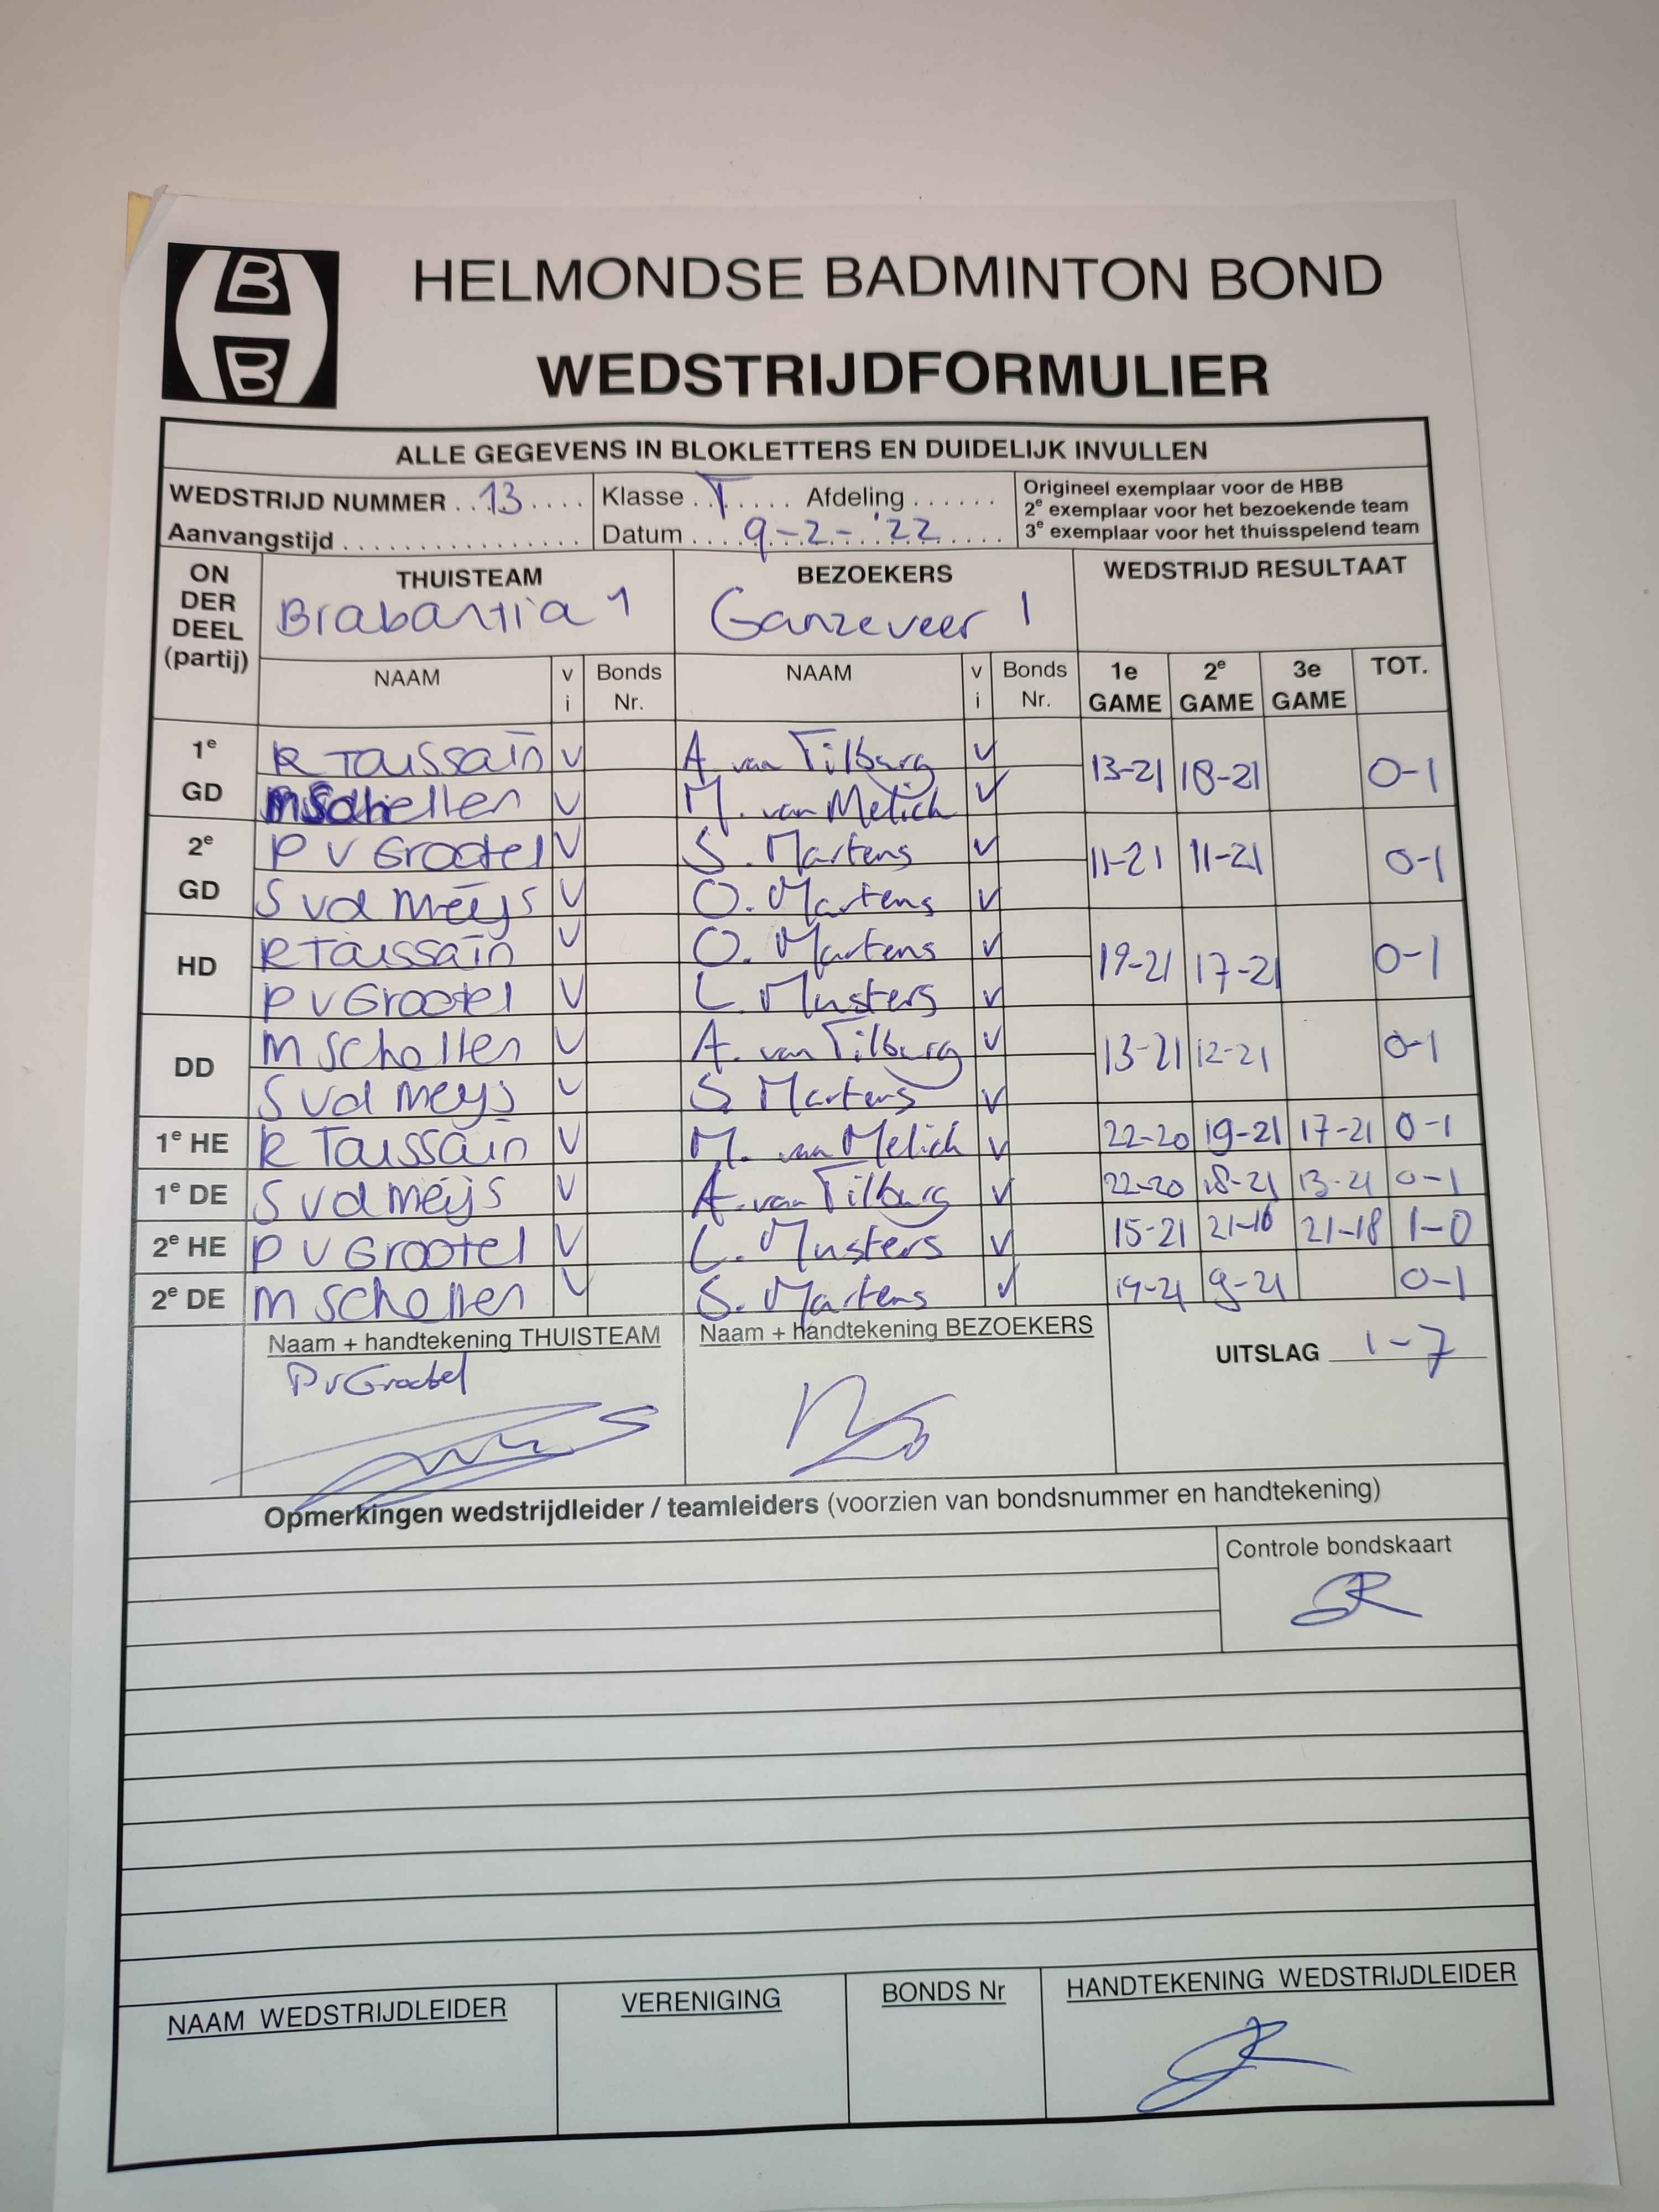 B
B
HELMONDSE BADMINTON BOND
WEDSTRIJDFORMULIER
ALLE GEGEVENS IN BLOKLETTERS EN DUIDELIJK INVULLEN
WEDSTRIJD NUMMER . . 13 . . . . Klasse . I . . . . Afdeling . . . . . . Origineel exemplaar voor de HBB
2e exemplaar voor het bezoekende team
Aanvangstijd . . . . . . . . . . . . . . . . Datum . . . . 9-2-'22 . . . . 3e exemplaar voor het thuisspelend team
ON DER DEEL (partij) THUISTEAM BEZOEKERS WEDSTRIJD RESULTAAT
Brabantia 1 Ganzeveer 1
NAAM v i Bonds Nr. NAAM v i Bonds Nr. 1e GAME 2e GAME 3e GAME TOT.
1e GD R Toussain V A. van Tilburg V 13-21 18-21 0-1
M Schellen V M. van Melich V
2e GD P V Grootel V S. Martens V 11-21 11-21 0-1
S vd Meijs V O. Martens V
HD R Toussain V O. Martens V 19-21 17-21 0-1
P V Grootel V L. Musters V
DD M Schellen V A. van Tilburg V 13-21 12-21 0-1
S vd Meys V S Martens V
1e HE R Toussain V M. van Melich V 22-20 19-21 17-21 0-1
1e DE S vd Meijs V A. van Tilburg V 22-20 18-21 13-21 0-1
2e HE P V Grootel V L. Musters V 15-21 21-16 21-18 1-0
2e DE M Schellen V S. Martens V 19-21 9-21 0-1
Naam + handtekening THUISTEAM Naam + handtekening BEZOEKERS UITSLAG 1-7
P v Grootel
Opmerkingen wedstrijdleider / teamleiders (voorzien van bondsnummer en handtekening)
Controle bondskaart
NAAM WEDSTRIJDLEIDER VERENIGING BONDS Nr HANDTEKENING WEDSTRIJDLEIDER